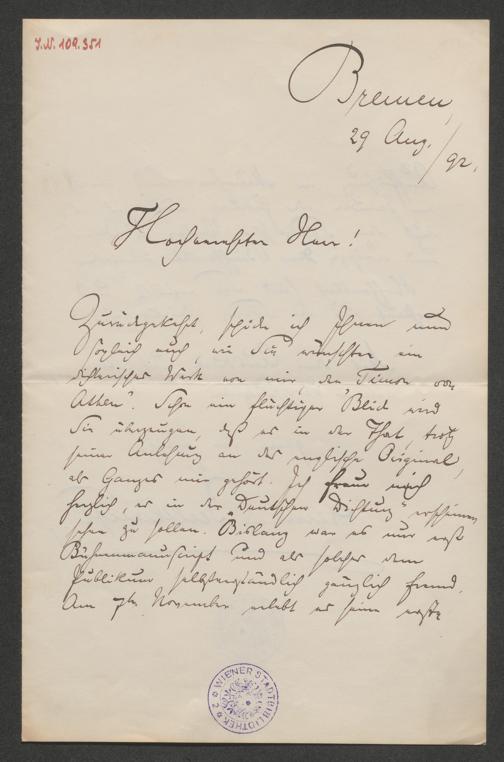 J.N. 109.351
Bremen,
29 Aug./92.
Hochverehrter Herr!
Zurückgekehrt, schicke ich Ihnen nun
sogleich auch, wie Sie wünschten, ein
dichterisches Werk von mir, den Timon von
Athen". Schon ein flüchtiger Blick wird
Sie überzeugen, daß es in der That, trotz
seiner Anlehnung an das englische Original,
als Ganzes mir gehört. Ich freue mich
herzlich, es in der „Deutschen Dichtung" erscheinen
sehen zu sollen. Bislang war es nur erst
Bühnenmanuscript und als solches dem
Publikum selbstverständlich gänzlich fremd.
Am 7ten November erlebt es seine erste
WIENER STADTBIBLIOTHEK